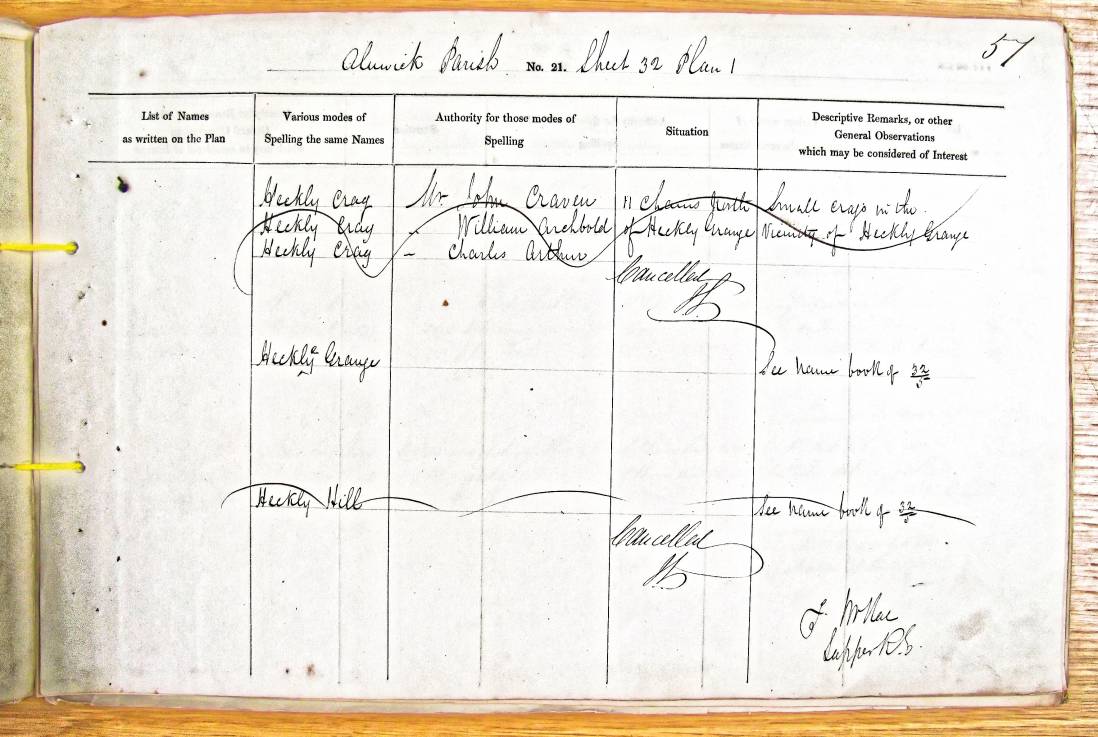 57
Alnwick Parish No. 21. Sheet 32 Plan 1
List of Names
as written on the Plan
Various modes of
Spelling the same Names
Authority for those modes of
Spelling
Situation
Descriptive Remarks, or other
General Observations
which may be considered of Interest
Heckly Crag Mr John Craven 11 Chains North Small crags in the
Heckly Crag " William Archbold of Heckly Grange Vicinity of Heckly Grange
Heckly Crag " Charles Arthur
Cancelled
Heckly Grange See name book of 32/5
e
Heckly Hill See name book of 32/5
Cancelled
Sapper R.E.